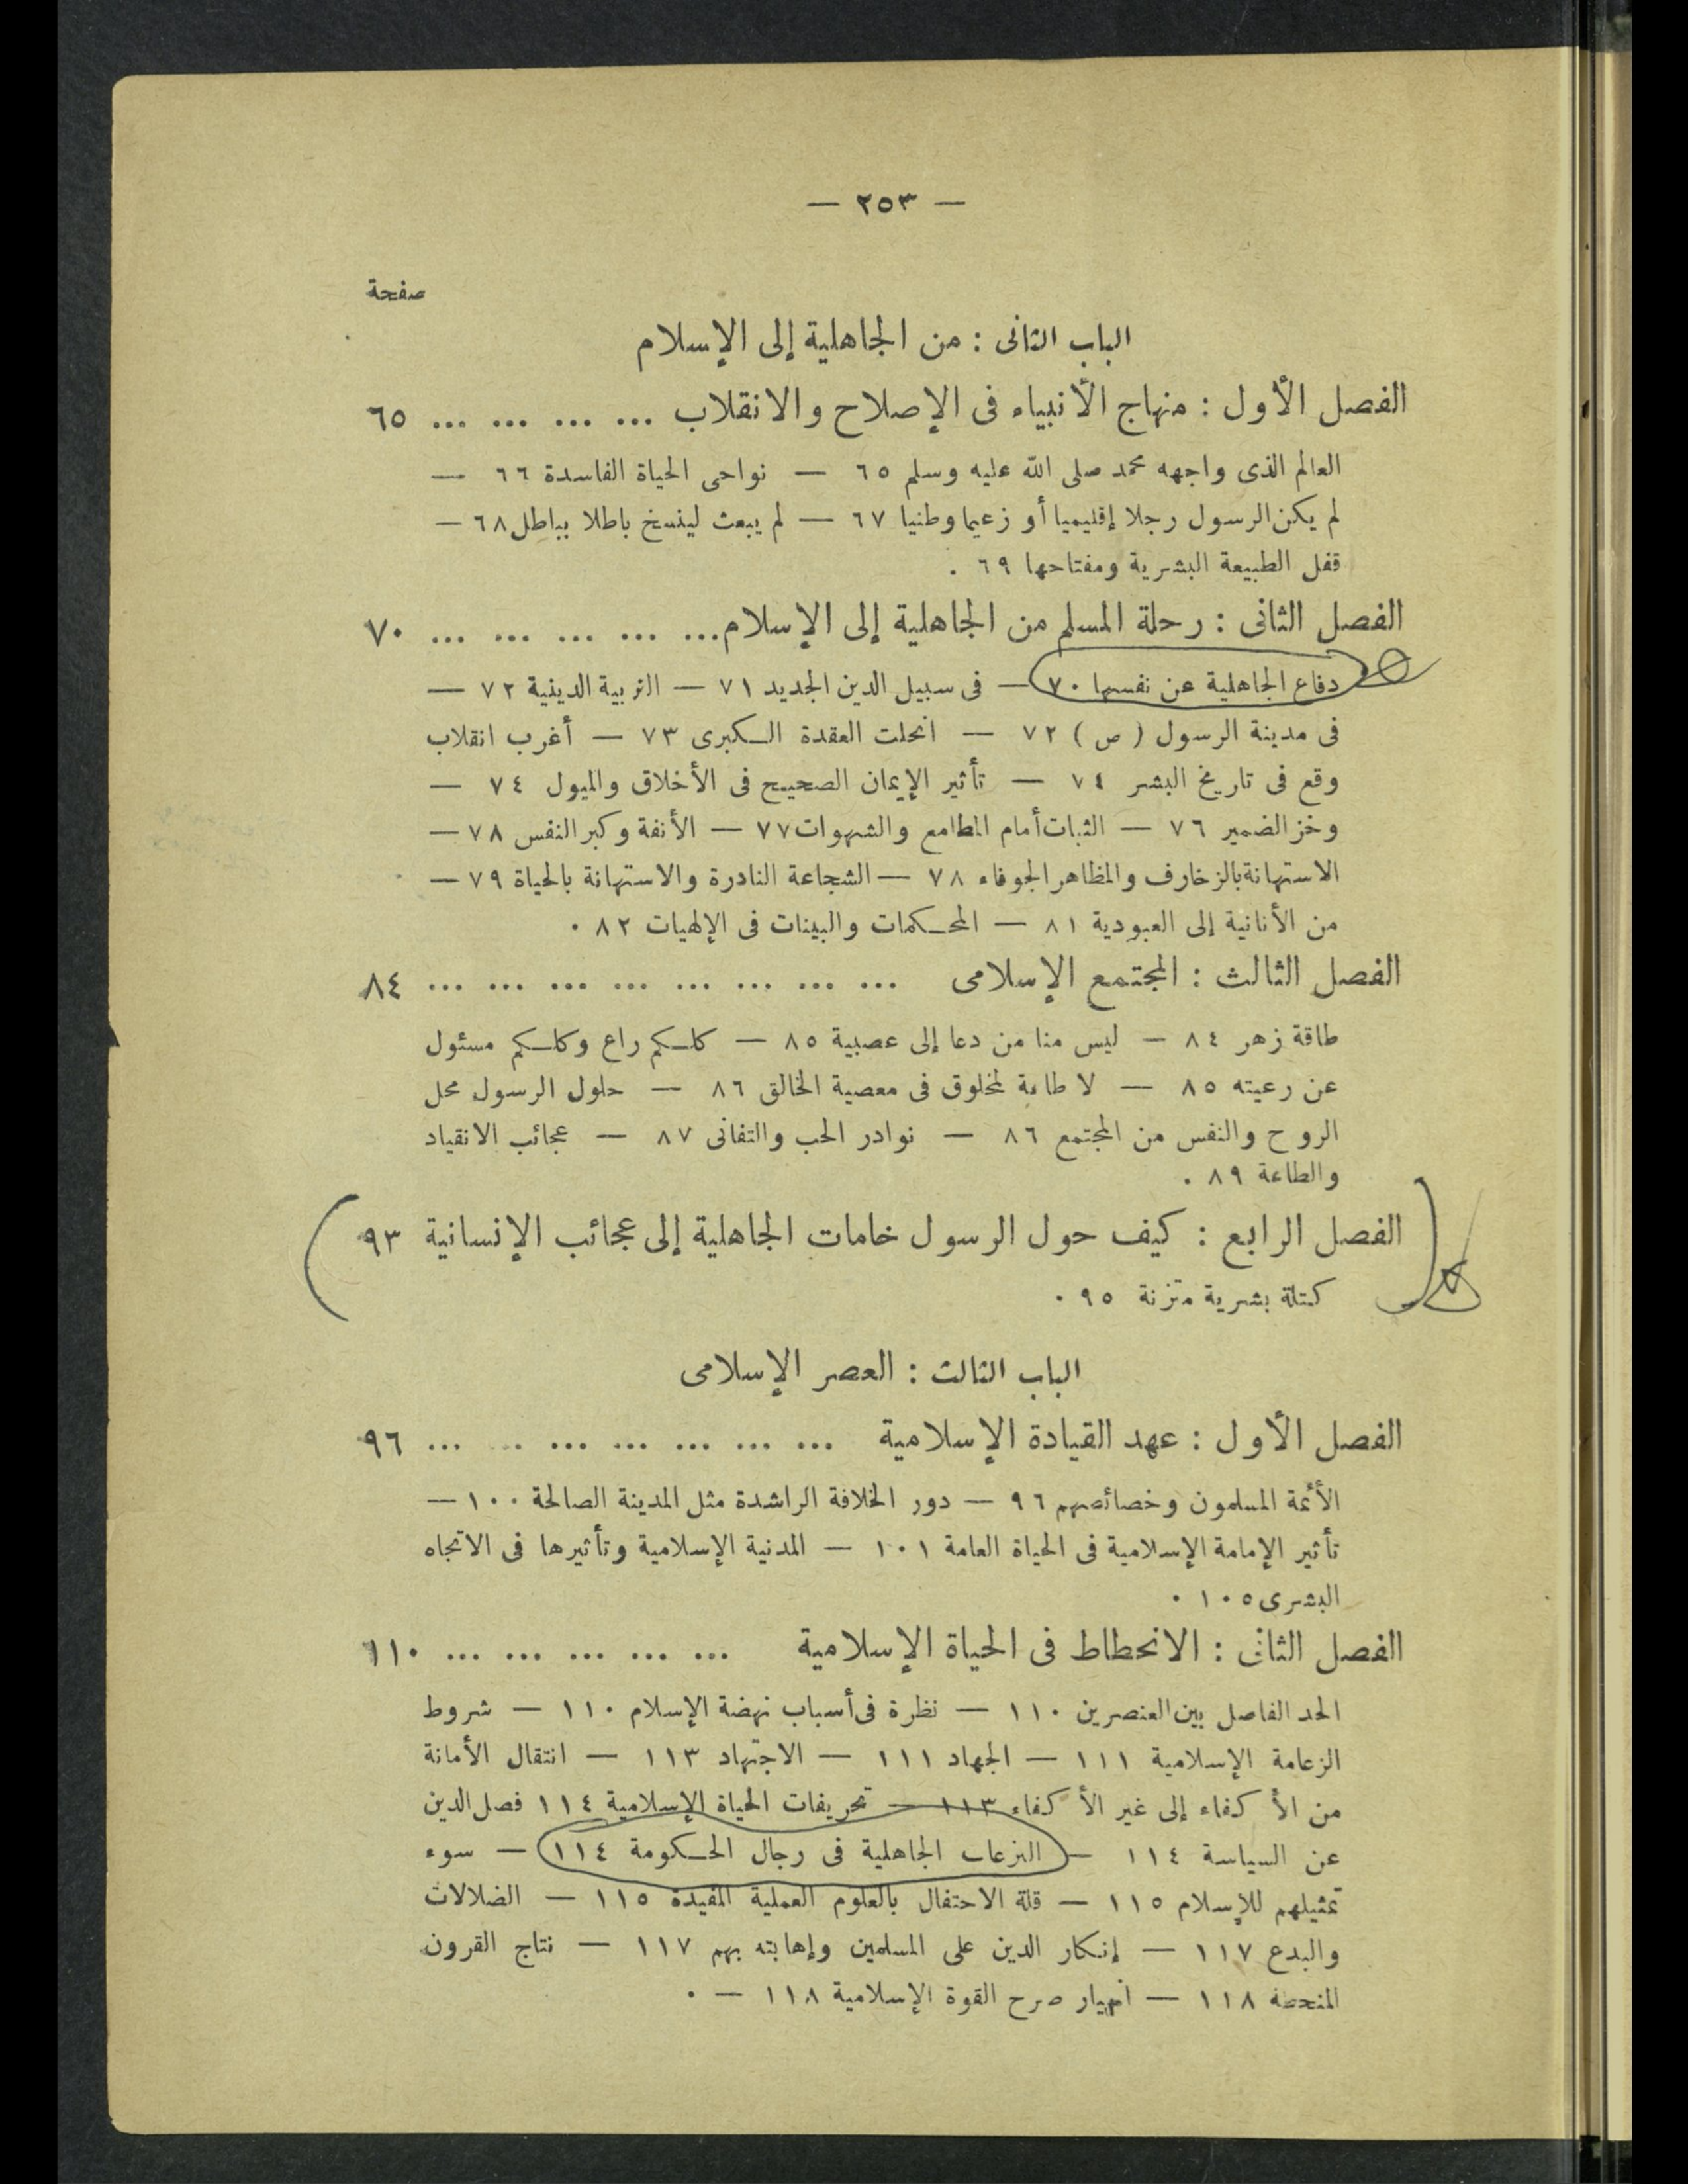 — ٢٥٣ —
صفحة
الباب الثانى : من الجاهلية إلى الإسلام
الفصل الأول : منهاج الأنبياء فى الإصلاح والانقلاب ... ... ... ... ٦٥
العالم الذى واجهه محمد صلى الله عليه وسلم ٦٥ — نواحى الحياة الفاسدة ٦٦ —
لم يكن الرسول رجلا إقليميا أو زعيما وطنيا ٦٧ — لم يبعث لينسخ باطلا بباطل ٦٨ —
قفل الطبيعة البشرية ومفتاحها ٦٩ .
الفصل الثانى : رحلة المسلم من الجاهلية إلى الإسلام ... ... ... ... ... ٧٠
دفاع الجاهلية عن نفسها ٧٠ — فى سبيل الدين الجديد ٧١ — التربية الدينية ٧٢ —
فى مدينة الرسول ( ص ) ٧٢ — انحلت العقدة الكبرى ٧٣ — أغرب انقلاب
وقع فى تاريخ البشر ٧٤ — تأثير الإيمان الصحيح فى الأخلاق والميول ٧٤ —
وخز الضمير ٧٦ — الثبات أمام المطامع والشهوات ٧٧ — الأنفة وكبر النفس ٧٨ —
الاستهانة بالزخارف والمظاهر الجوفاء ٧٨ — الشجاعة النادرة والاستهانة بالحياة ٧٩ —
من الأنانية إلى العبودية ٨١ — المحكمات والبينات فى الإلهيات ٨٢ .
الفصل الثالث : المجتمع الإسلامى ... ... ... ... ... ... ... ... ٨٤
طاقة زهر ٨٤ — ليس منا من دعا إلى عصبية ٨٥ — كلكم راع وكلكم مسئول
عن رعيته ٨٥ — لا طاعة لمخلوق فى معصية الخالق ٨٦ — حلول الرسول محل
الروح والنفس من المجتمع ٨٦ — نوادر الحب والتفانى ٨٧ — عجائب الانقياد
والطاعة ٨٩ .
الفصل الرابع : كيف حول الرسول خامات الجاهلية إلى عجائب الإنسانية ٩٣
كتلة بشرية متزنة ٩٥ .
الباب الثالث : العصر الإسلامى
الفصل الأول : عهد القيادة الإسلامية ... ... ... ... ... ... ... ٩٦
الأئمة المسلمون وخصائصهم ٩٦ — دور الخلافة الراشدة مثل المدينة الصالحة ١٠٠ —
تأثير الإمامة الإسلامية فى الحياة العامة ١٠١ — المدنية الإسلامية وتأثيرها فى الاتجاه
البشرى ١٠٥ .
الفصل الثانى : الانحطاط فى الحياة الإسلامية ... ... ... ... ... ١١٠
الحد الفاصل بين العنصرين ١١٠ — نظرة فى أسباب نهضة الإسلام ١١٠ — شروط
الزعامة الإسلامية ١١١ — الجهاد ١١١ — الاجتهاد ١١٣ — انتقال الأمانة
من الأكفاء إلى غير الأكفاء ١١٣ — تحريفات الحياة الإسلامية ١١٤ فصل الدين
عن السياسة ١١٤ — النزعات الجاهلية فى رجال الحكومة ١١٤ — سوء
تمثيلهم للإسلام ١١٥ — قلة الاحتفال بالعلوم العملية المفيدة ١١٥ — الضلالات
والبدع ١١٧ — إنكار الدين على المسلمين وإهابته بهم ١١٧ — نتاج القرون
المنحطة ١١٨ — انهيار صرح القوة الإسلامية ١١٨ — .